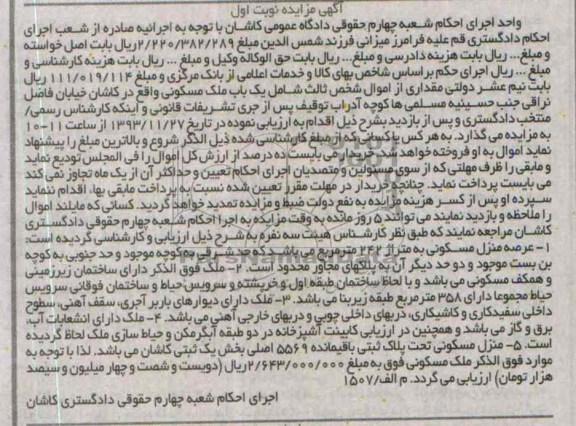 آگهی مزایده نوبت اول
واحد اجرای احکام شعبه چهارم حقوقی دادگاه عمومی کاشان با توجه به اجرائیه صادره از شعب اجرای
احکام دادگستری قم علیه فرامرز میزانی فرزند شمس الدین مبلغ ۲/۲۲۰/۳۸۲/۲۸۹ ریال بابت اصل خواسته
و مبلغ... ریال بابت هزینه دادرسی و مبلغ... ریال بابت حق الوکاله وکیل و مبلغ ... ریال بابت هزینه کارشناسی و
مبلغ ... ریال اجرای حکم بر اساس شاخص بهای کالا و خدمات اعلامی از بانک مرکزی و مبلغ ۱۱۱/۰۱۹/۱۱۴ ریال
بابت نیم عشر دولتی مقداری از اموال شخص ثالث شامل یک باب ملک مسکونی واقع در کاشان خیابان فاضل
نراقی جنب حسینیه مسلمی ها کوچه آدراب توقیف پس از جری تشریفات قانونی و اینکه کارشناس رسمی/
منتخب دادگستری و پس از بازدید بشرح ذیل اقدام به ارزیابی نموده در تاریخ ۱۳۹۳/۱۱/۲۷ از ساعت ۱۱-۱۰
به مزایده می گذارد. به هر کس یا کسانی که از مبلغ کارشناسی شده ذیل الذکر شروع و بالاترین مبلغ را پیشنهاد
نماید اموال به او فروخته خواهد شد می بایست ده درصد از ارزش کل اموال را فی المجلس تودیع نماید
و مابقی را ظرف مهلتی که از سوی مسئولین و متصدیان اجرای احکام تعیین و حداکثر آن از یک ماه تجاوز نمی کند
می بایست پرداخت نماید. چنانچه خریدار در مهلت مقرر تعیین شده نسبت به پرداخت مابقی بها، اقدام ننماید
سپرده او پس از کسر هزینه مزایده به نفع دولت ضبط و مزایده تمدید خواهد گردید. کسانی که مایلند اموال
را ملاحظه و بازدید نمایند می توانند ۵ روز مانده به وقت مزایده به اجرا احکام شعبه چهارم حقوقی دادگستری
کاشان مراجعه نمایند که طبق نظر کارشناس هیئت سه نفره به شرح ذیل ارزیابی و کارشناسی گردیده است:
۱- عرصه منزل مسکونی به متراژ ۲۴۲ مترمربع می باشد که حد شرقی به کوچه موجود و حد جنوبی به کوچه
بن بست موجود و دو حد دیگر آن به پلکهای مجاور محدود است. ۲- ملک فوق الذکر دارای ساختمان زیرزمینی
و همکف مسکونی می باشد و با لحاظ ساختمان طبقه اول و خرپشته و سرویس حیاط و ساختمان فوقانی سرویس
حیاط مجموعا دارای ۳۵۸ مترمربع طبقه زیربنا می باشد. ۳- ملک دارای دیوارهای باربر آجری، سقف آهنی، سطوح
داخلی سفیدکاری و کاشیکاری، دربهای داخلی چوبی و دربهای خارجی آهنی می باشد. ۴- ملک دارای انشعابات آب،
برق و گاز می باشد و همچنین در ارزیابی کابینت آشپزخانه در دو طبقه آبگرمکن و حیاط سازی ملک لحاظ گردیده
است. ۵- منزل مسکونی تحت پلاک ثبتی باقیمانده ۵۵۶۹ اصلی بخش یک ثبتی کاشان می باشد. لذا با توجه به
موارد فوق الذکر ملک مسکونی فوق به مبلغ ۲/۶۴۳/۰۰۰/۰۰۰ ریال (دویست و شصت و چهار میلیون و سیصد
هزار تومان) ارزیابی می گردد. م الف/۱۵۰۷
اجرای احکام شعبه چهارم حقوقی دادگستری کاشان